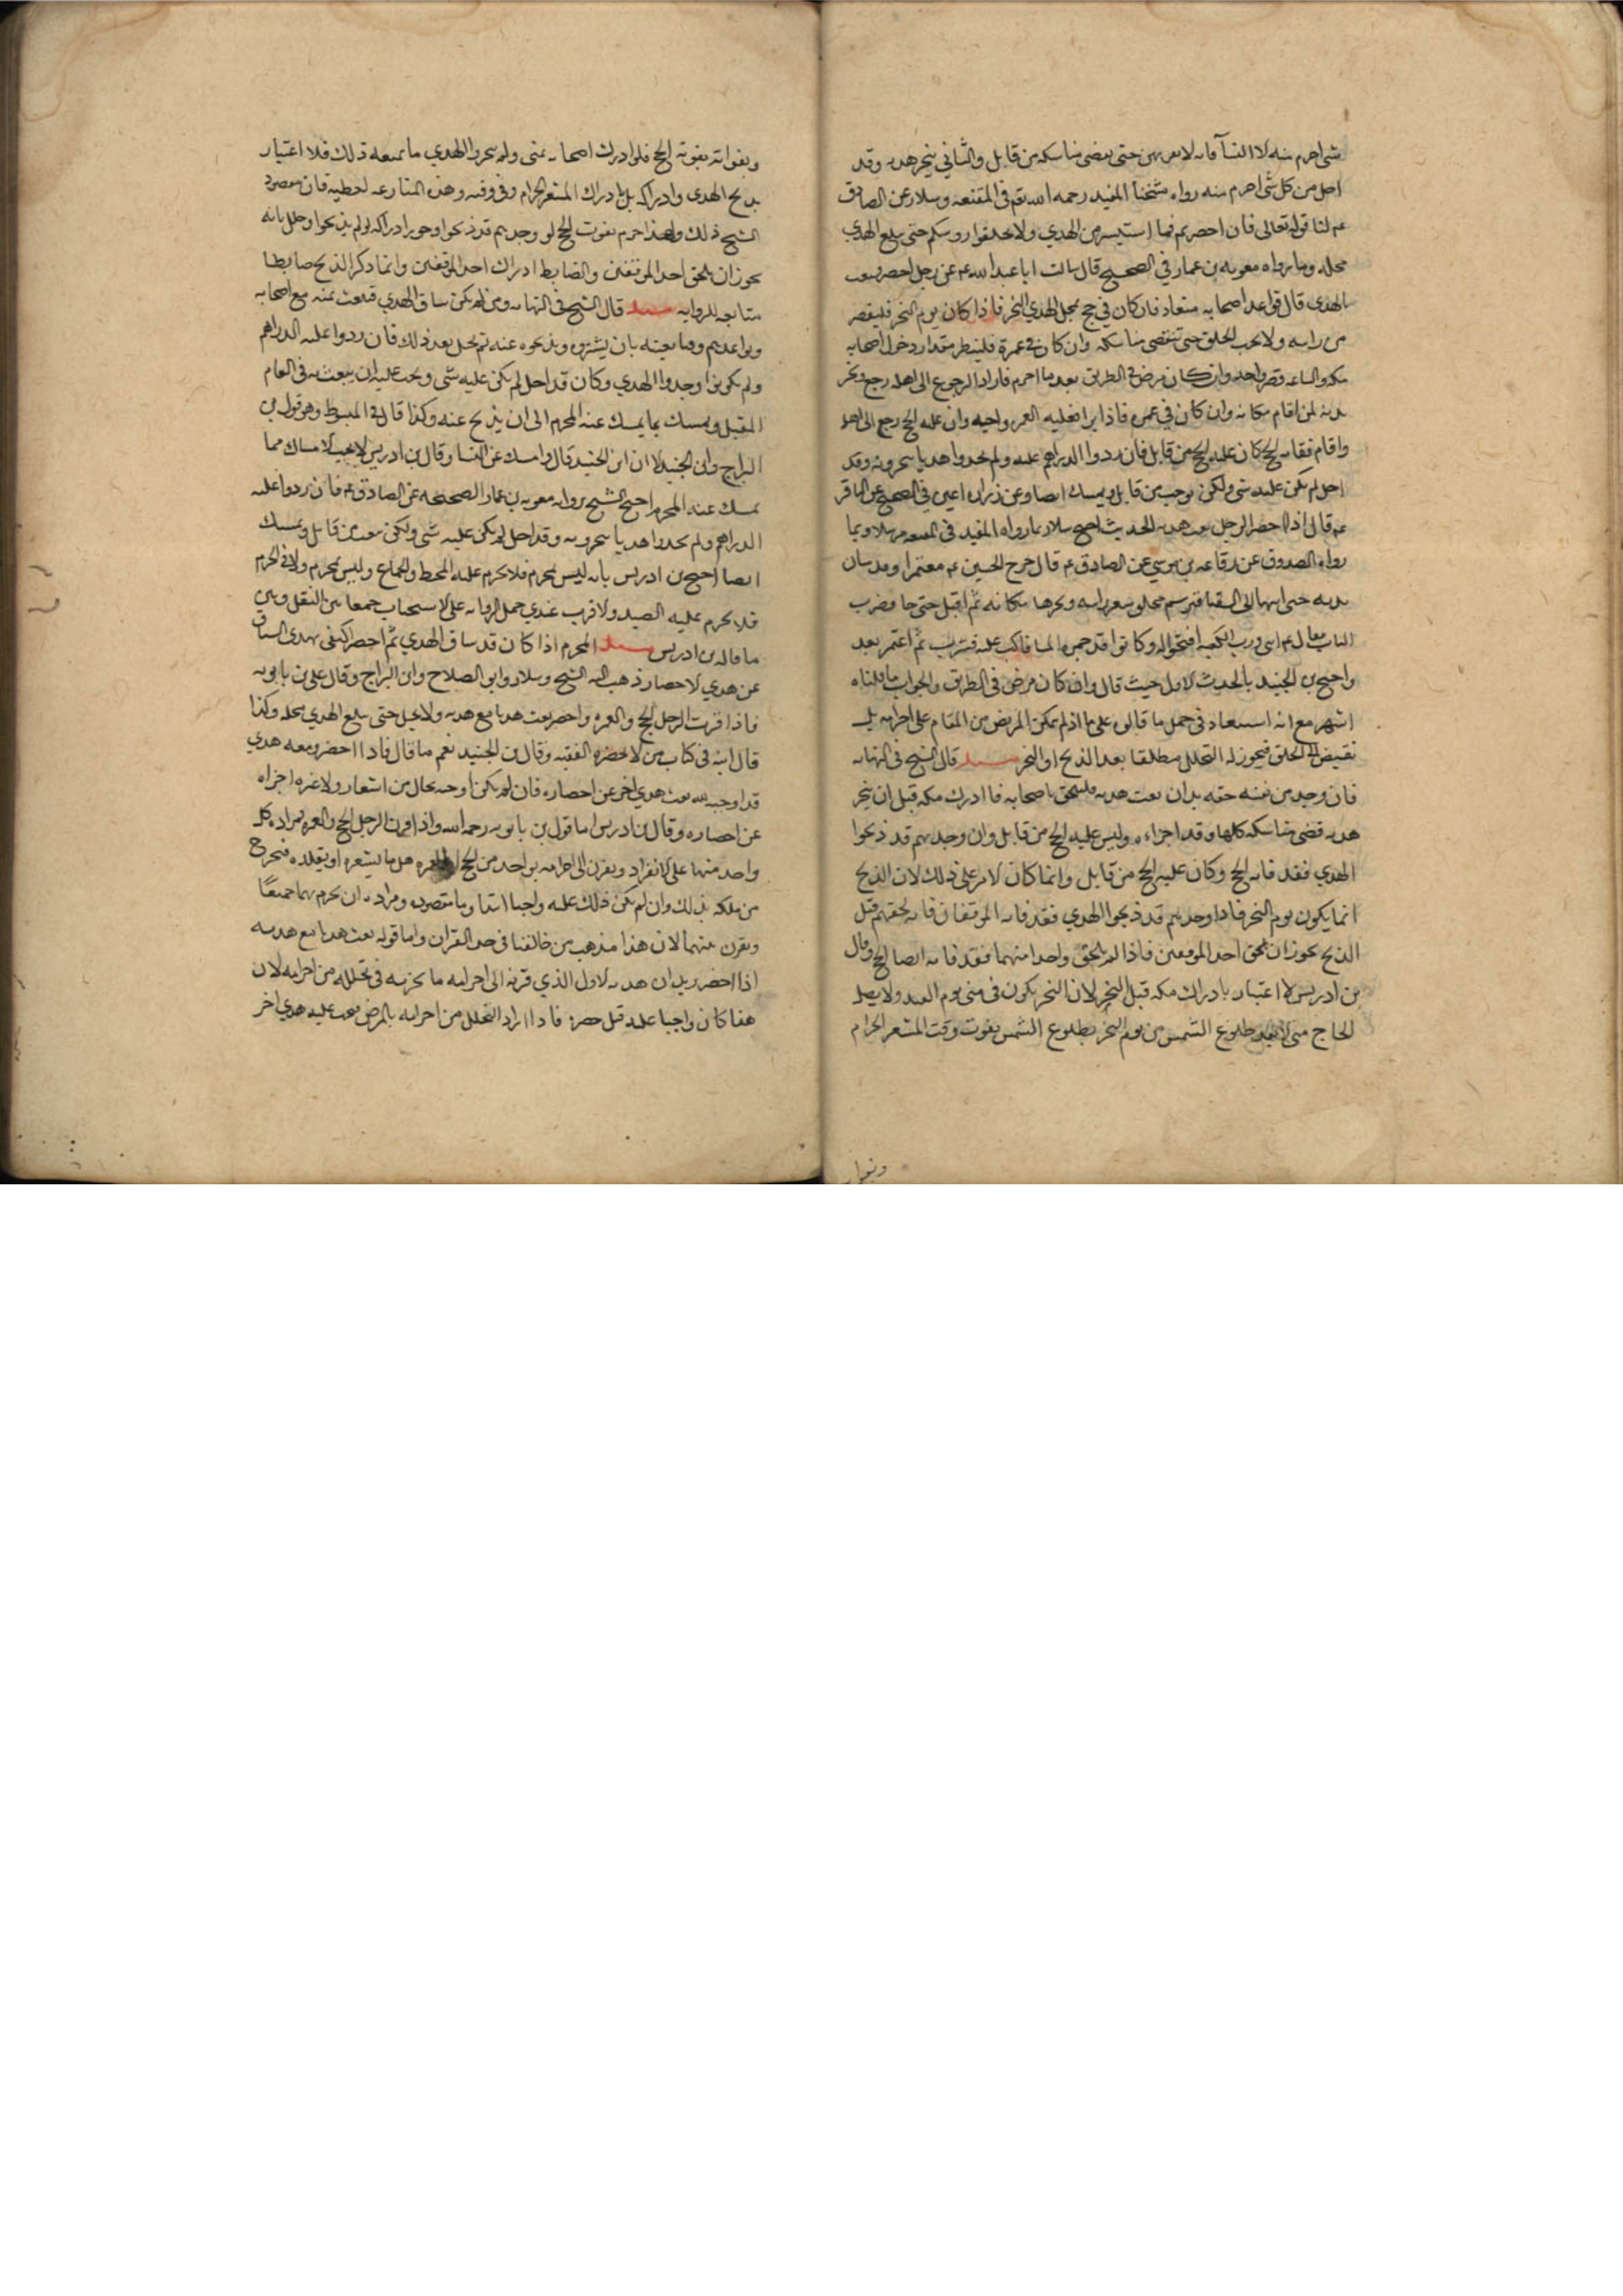 شی احرم منه الا النسآ فانه لا یقربهن حتی یقضی مناسکه من قابل والثانی ینحر هدیه وقد
احل من کل شی احرم منه رواه شیخنا المفید رحمه الله تع فی المقنعه وسلار عن الصادق
عم لنا قوله تعالی فان احصرتم فما استیسر من الهدی ولا تحلقوا روسکم حتی یبلغ الهدی
محله وما رواه معویه بن عمار فی الصحیح قال سالت ابا عبد الله عم عن رجل احصر فبعث
بالهدی قال یواعد اصحابه میعاد فان کان فی حج فمحل الهدی النحر فاذا کان یوم النحر فلیقصر
من راسه ولا یجب الحلق حتی تنقضی مناسکه وان کان فی عمرة فلینظر مقدار دخول اصحابه
مکه والساعه قصر واحل وان کان مرض فی الطریق بعد ما احرم فاراد الرجوع الی اهله رجع ونحر
بدنه لمن اقام مکانه وان کان فی عمره فاذا برا فعلیه العمره واجبه وان علیه الحج رجع الی اهله
واقام ففاته الحج کان علیه الحج من قابل فان ردوا الدراهم علیه ولم یجدوا هدیا ینحرونه وقد
احل لم یکن علیه شی ولکن یبعث من قابل ویمسک ایضا وعن زراره اعین فی الصحیح عن الباقر
عم قال اذا احصر الرجل بعث هدیه الحدیث احتج سلار بما رواه المفید فی المقنعه مرسلا وبما
رواه الصدوق عن رفاعه بن موسی عن الصادق عم قال خرج الحسین عم معتمرا وقد ساق
بدنه حتی انتهی الی السقیا فبرسم فحلق شعر راسه ونحرها مکانه ثم اقبل حتی جا فضرب
الباب فقال عم ابنی ورب الکعبه افتحوا له وکانوا قد حموا الما فاکب علیه فشرب ثم اعتمر بعد
واحتج بن الجنید بالحدیث الاول حیث قال وان کان مرض فی الطریق والجواب ما قلناه
اشهر مع انه استبعاد فی حمل ما قالوه علی ما اذا لم یمکن المریض من المقام علی احرامه
نقیض الی الحلق فیجوز له التحلل مطلقا بعد الذبح او النحر مسئله قال الشیخ فی النهایه
فان وجد من نفسه خفه بعد ان بعث هدیه فلیلحق باصحابه فاا ادرک مکه قبل ان ینحر
هدیه قضی مناسکه کلها وقد اجزاءه ولیس علیه الحج من قابل وان وجدهم قد ذبحوا
الهدی فقد فاته الحج وکان علیه الحج من قابل وانما کان الامر علی ذلک لان الذبح
انما یکون یوم النحر فاذا وجدهم قد ذبحوا الهدی فقد فاته الموقفان فانه لحقهم قبل
الذبح یجوز ان یلحق احد الموقفین فاذا لم یلحق واحدا منهما فقد فاته ایضا الحج وقال
بن ادریس لا اعتبار بادراک مکه قبل النحر لان النحر یکون فی منی یوم العید ولا یصل
الحاج منی الا بعد طلوع الشمس من یوم النحر بطلوع الشمس یفوت وقت المشعر الحرام
وبفوا
وبفواته یفوته الحج فلو ادرک اصحابه بمنی ولم ینحروا الهدی ما نفعه ذلک فلا اعتبار
بذبح الهدی وادراکه بل بادراک المشعر الحرام وفی وقته وهذه المنازعه لفظیه فان مقصود
الشیخ ذلک ولهذا جزم بفوت الحج لو وجدهم قد ذبحوا وجوز ادراکه لو لم یذبحوا وعلل بانه
یجوز ان یلحق احد الموقفین والضابط ادراک احد الموقفین وانما ذکر الذبح ضابطا
متابعه للروایه مسئله قال الشیخ فی النهایه ومن لم یکن ساق الهدی فبعث بثمنه مع اصحابه
ویواعدهم وقتا بعینه بان یشتروه ویذبحوه عنه ثم یحل بعد ذلک فان ردوا علیه الدراهم
ولم یکونوا وجدوا الهدی وکان قد احل لم یکن علیه شی ویجب علیه ان یبعث به فی العام
المقبل ویمسک بما یمسک عنه المحرم الی ان یذبح عنه وکذا قال فی المبسوط وهو قول بن
البراج وابن الجنید الا ان ابن الجنید قال وامسک عن النسا وقال بن ادریس لا یجب الامساک مما
یمسک عنه المحرم احتج الشیخ بروایه معویه بن عمار الصحیحه عن الصادق عم فان ردوا علیه
الدراهم ولم یجدوا هدیا ینحرونه وقد احل لم یکن علیه شی ولکن یبعث من قابل ویمسک
ایضا احتج بن ادریس بانه لیس بمحرم فلا یحرم علیه المخیط والجماع ولیس بمحرم ولا فی الحرم
فلا یحرم علیه الصید ولاقرب عندی حمل الروایه علی الاستحباب جمعا بین النقل وبین
ما قاله بن ادریس مسئله المحرم اذا کان قد ساق الهدی ثم احصر اکتفی بهدی السیاق
عن هدی الاحصار ذهب الیه الشیخ وسلار وابو الصلاح وابن البراج وقال علی بن بابویه
فاذا قرن الرجل الحج والعمره واحصر بعث هدیا مع هدیه ولا یحل حتی یبلغ الهدی محله وکذا
قال ابنه فی کتاب من لا یحضره الفقیه وقال بن الجنید نعم ما قال فاذا احضر ومعه هدی
قد اوجبه لله بعث هدی اخر عن احصاره فان لم یکن اوجبه بحال من اشعار ولا غیره اجزاه
عن احصاره وقال بن ادریس اما قول بن بابویه رحمه الله واذا قرن الرجل الحج والعمره فمراده کل
واحد منهما علی الانفراد ویقرن الی احرامه بواحد من الحج او العمره هدیا یشعره او یقلده فیخرج
من ملکه بذلک وان لم یکن ذلک علیه واجبا ابتدا وما مقصوده ومراده ان یحرم بهما جمیعا
ویقرن بینهما لان هذا مذهب من خالفنا فی حد القران واما قوله بعث هدیا مع هدیه
اذا احضر یرید ان هدیه الاول الذی قرنه الی احرامه ما یجزیه فی تحلله من احرامه لان
هذا کان واجبا علیه قبل حصره فاذا اراد التحلل من احرامه بالمرض فیجب علیه هدی اخر